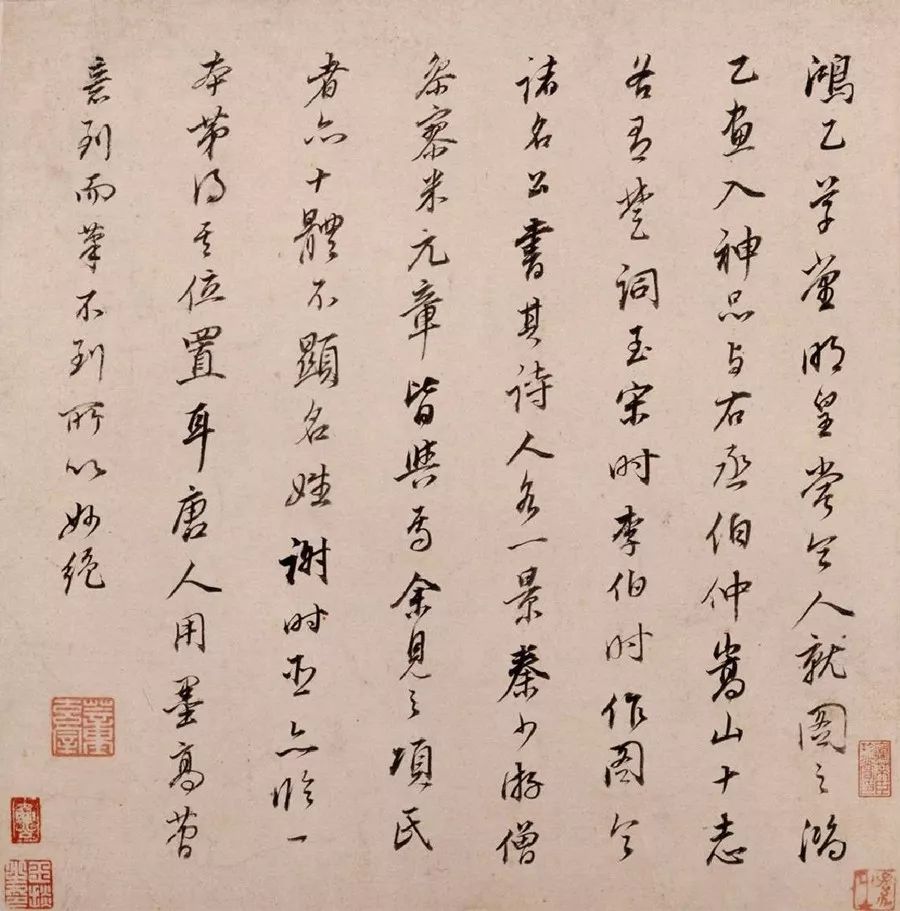 鴻乙草堂明皇嘗令人就圖之鴻
乙畫入神品与右丞伯仲嵩山十志
各有楚詞至宋時李伯時作圖令
諸名公書其詩人各一景秦少游僧
參寥米元章皆與焉余見之項氏
者亦十體不顯名姓謝時臣亦臨一
本第得其位置耳唐人用墨高簡
意到而筆不到所以妙絕